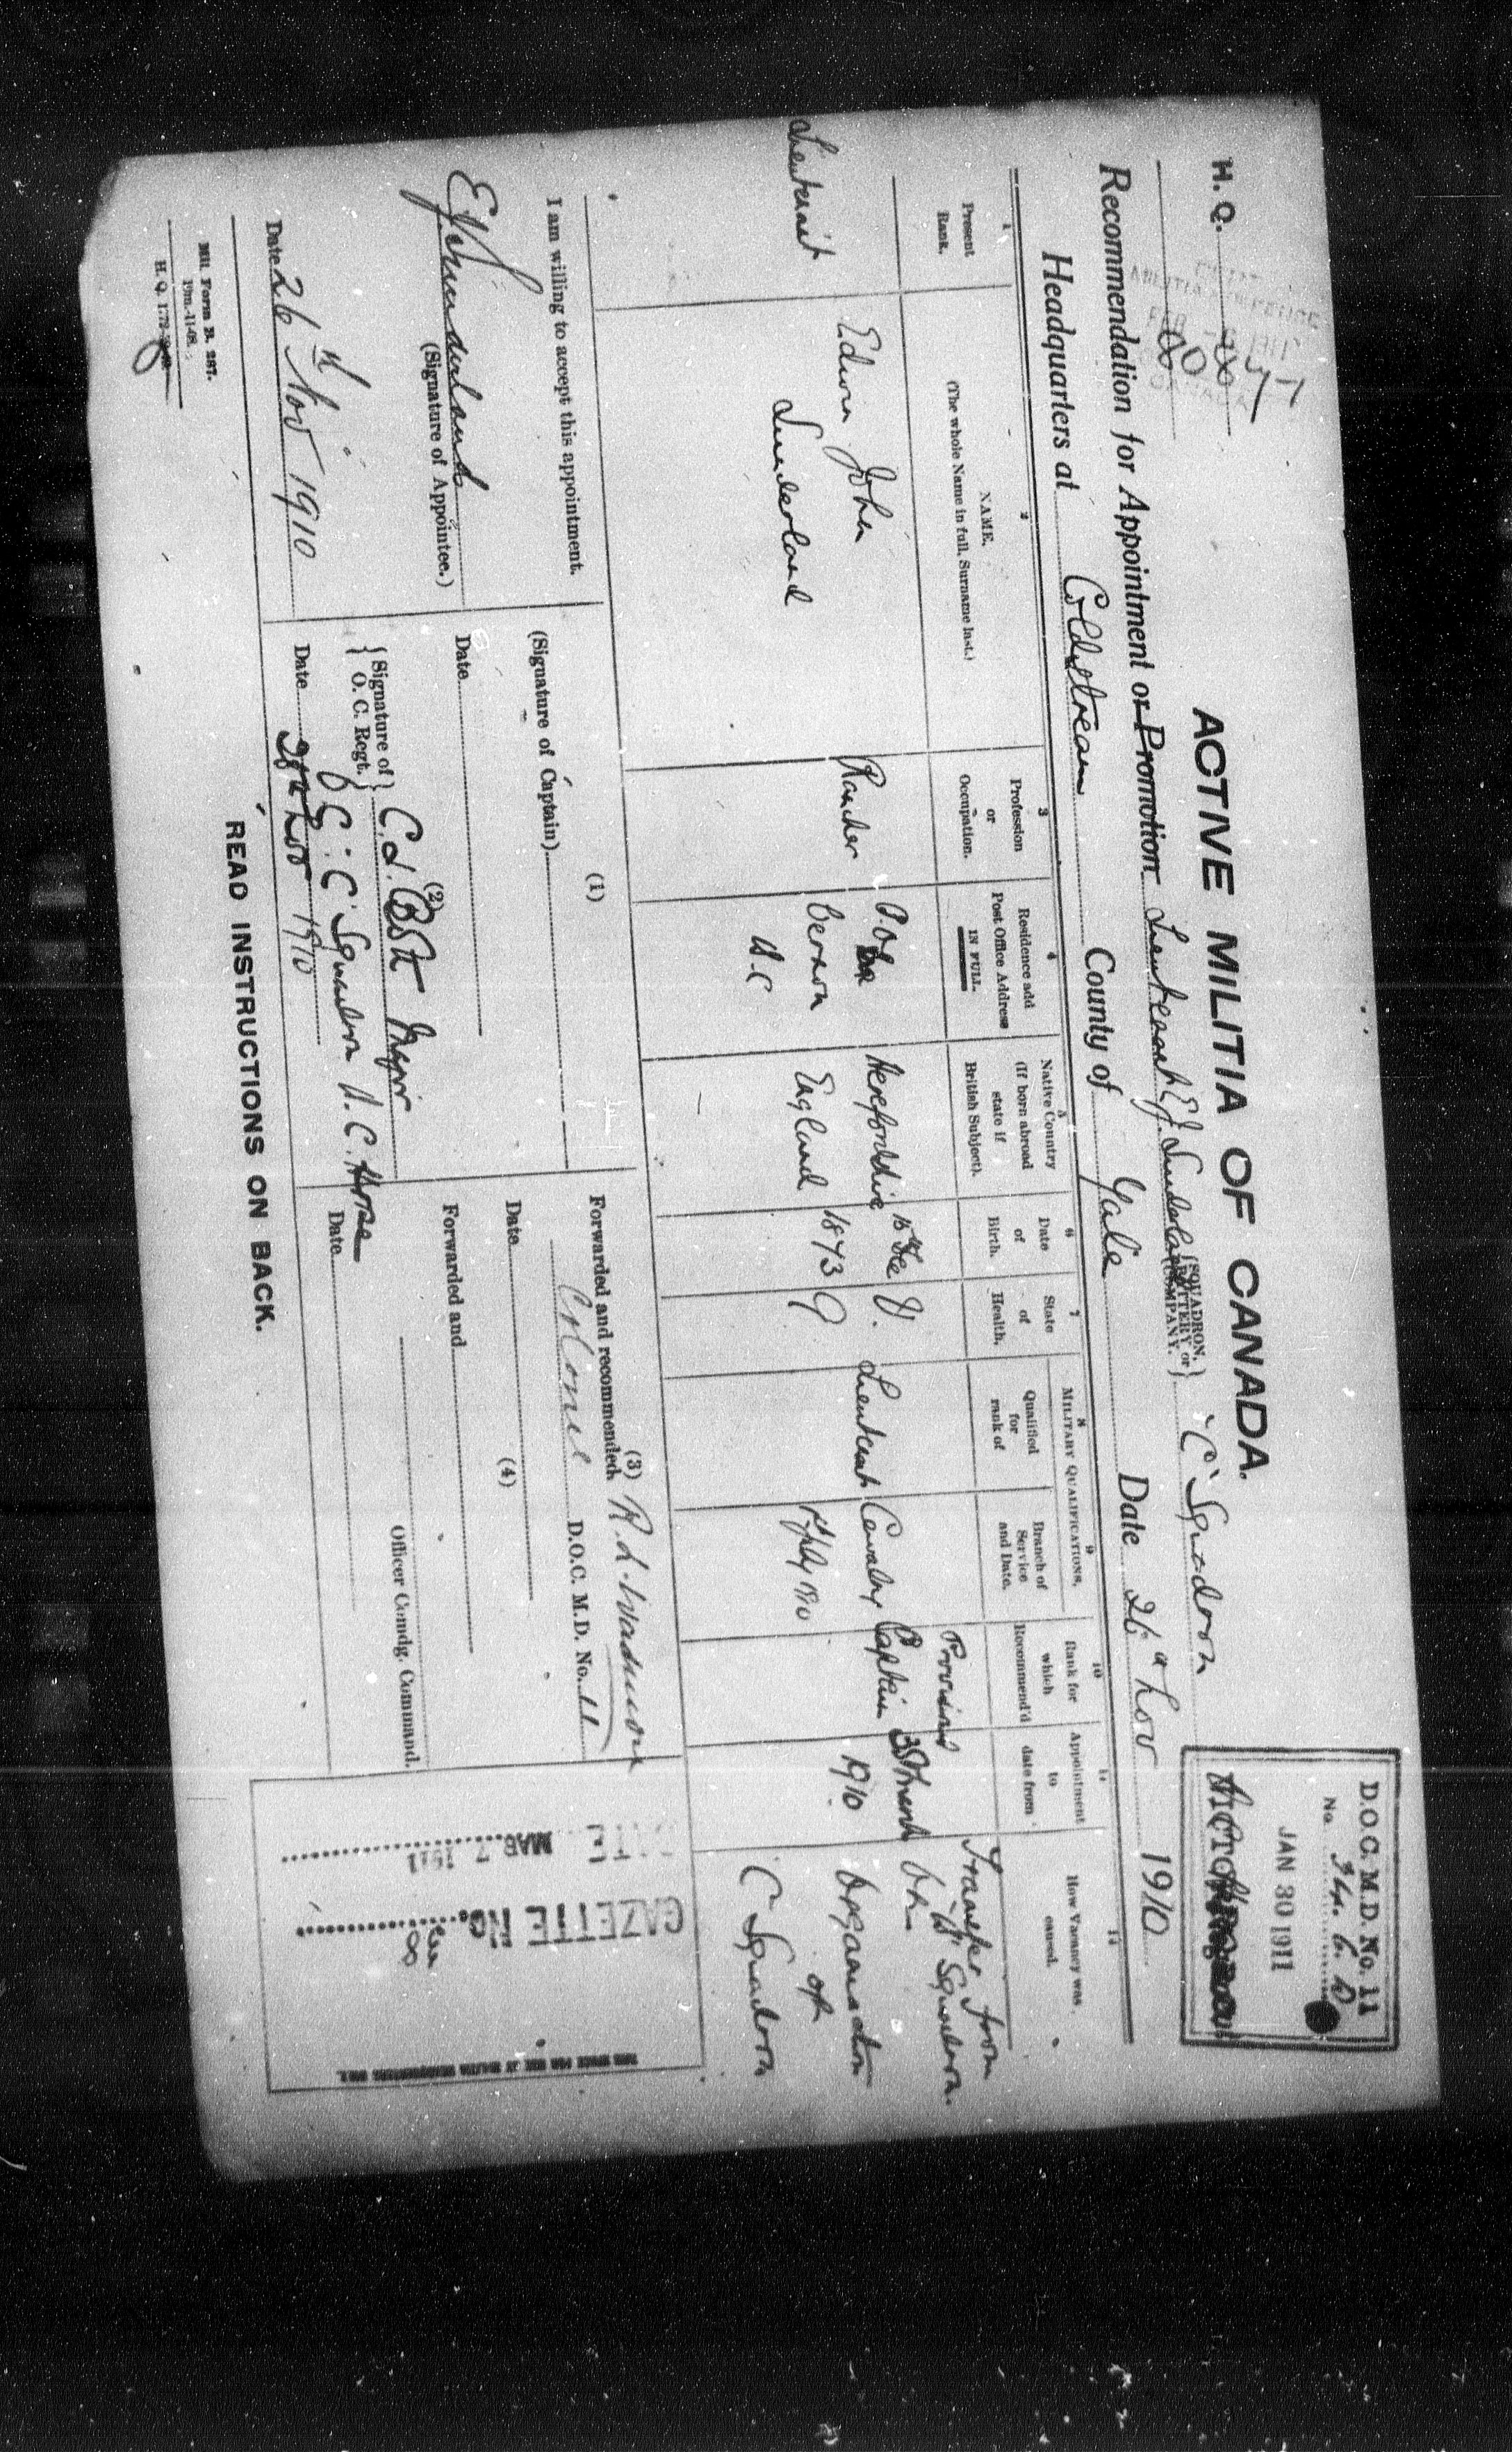 H. Q.
FEB
D.O.C. M.D. No. 11
No.
JAN 30 1911
ACTIVE MILITIA OF CANADA.
Recommendation for Appointment or Promotion Lieutenant E.J. Sunderland {SQUADRON, BATTERY or COMPANY.} "C" Squadron
Headquarters at Coldstream County of Yale Date 26th Nov 1910
1
Present
Rank.
2
NAME.
(The whole Name in full, Surname last.)
3
Profession
or
Occupation.
4
Residence add
Post Office Address
IN FULL.
5
Native Country
(If born abroad
state if
British Subject).
6
Date
of
Birth.
7
State
of
Health.
MILITARY QUALIFICATIONS.
8
Qualified
for
rank of
9
Branch of
Service
and Date.
10
Rank for
which
Recommend'd
11
Appointment
to
date from
12
How Vacancy was
caused.
Lieutenant
Edwin John
Sunderland
Rancher
Vernon
B.C
Herefordshire
England
1873
Lieutenant
Cavalry
1910
Provisional
Captain
1910
Transfer from
"B" Squadron.
on
organisation
of
C Squadron
I am willing to accept this appointment.
EJ Sunderland
(Signature of Appointee.)
Date 26th Nov 1910
(1)
(Signature of Captain)
Date
(2)
{Signature of O. C. Regt.} C.L. Bott Major
O C. C Squadron B. C. Horse
Date 1910
(3)
Forwarded and recommended, R. L. Wadmore
Colonel D.O.C. M.D. No. 11
Date
(4)
Forwarded and
Officer Comdg. Command.
Date
MAR 7 1911
GAZETTE NO.
THIS SPACE FOR USE AT MILITIA HEADQUARTERS ONLY.
Mil. Form B. 267.
H. Q. 1772
READ INSTRUCTIONS ON BACK.